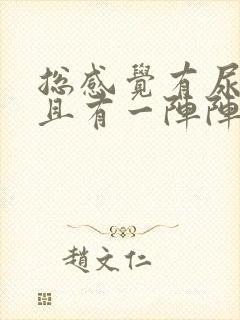 总感覺有尿
且有一陣陣
趙文仁